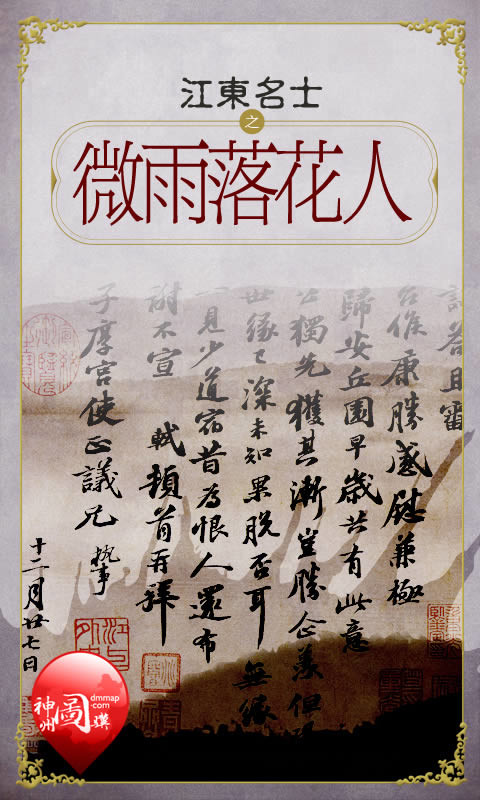 江東名士
之
微雨落花人
答且審
台候康勝感慰兼極
歸安丘園早歲共有此意
公獨先獲其漸豈勝企羨但
世緣已深未知果脫否耳無緣
一見少道宿昔為恨人還布
謝不宣 軾頓首再拜
子厚宮使正議兄 執事
十二月廿七日
神州圖驥
dmmap
·com